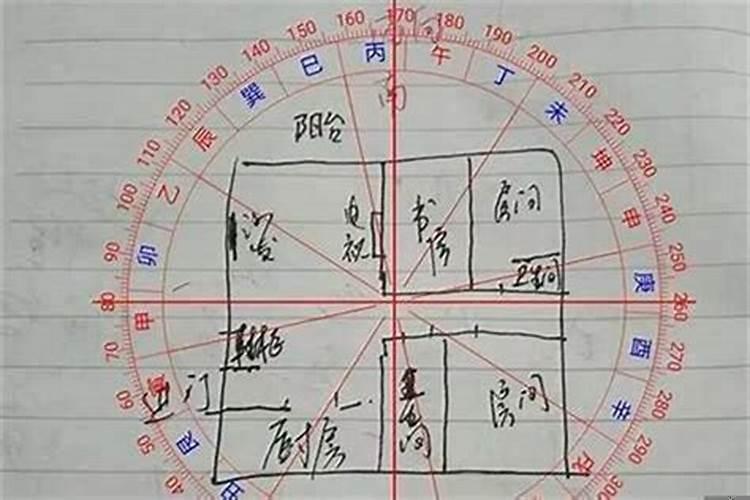 150 160 170 180 190
140 200
130 210
120 220
110 230
100 240
90 250
80 260
70 270
60 280
50 290
40 300
巳 丙 午 丁
巽 未
辰 坤
乙 申
卯 庚
甲 酉
辛
戌
南
阳台
沙发 电视 书房 房间
卫生间
鞋柜
进门
厨房 房间